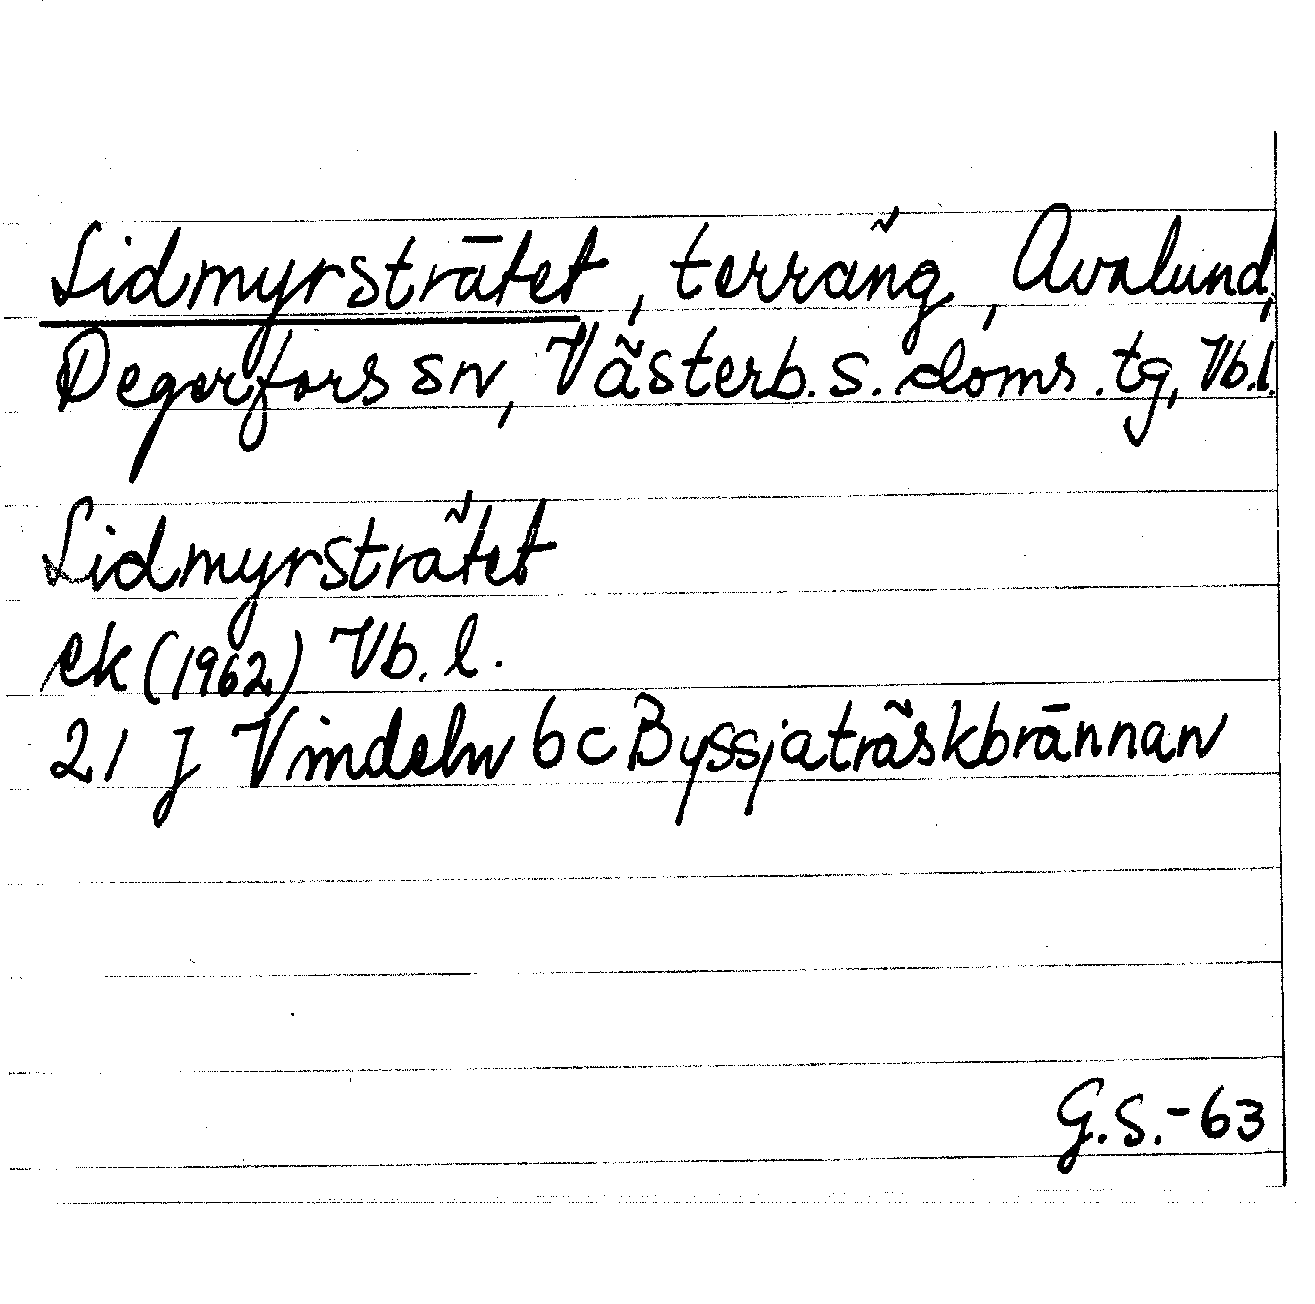 Lidmyrsträtet, terräng, Avalund,
Degerfors sn, Västerb. s. doms. tg, Vb.l.
Lidmyrsträtet
ek (1962) Vb. l.
21 J Vindeln 6c Byssjaträskbrännan
G.S.-63